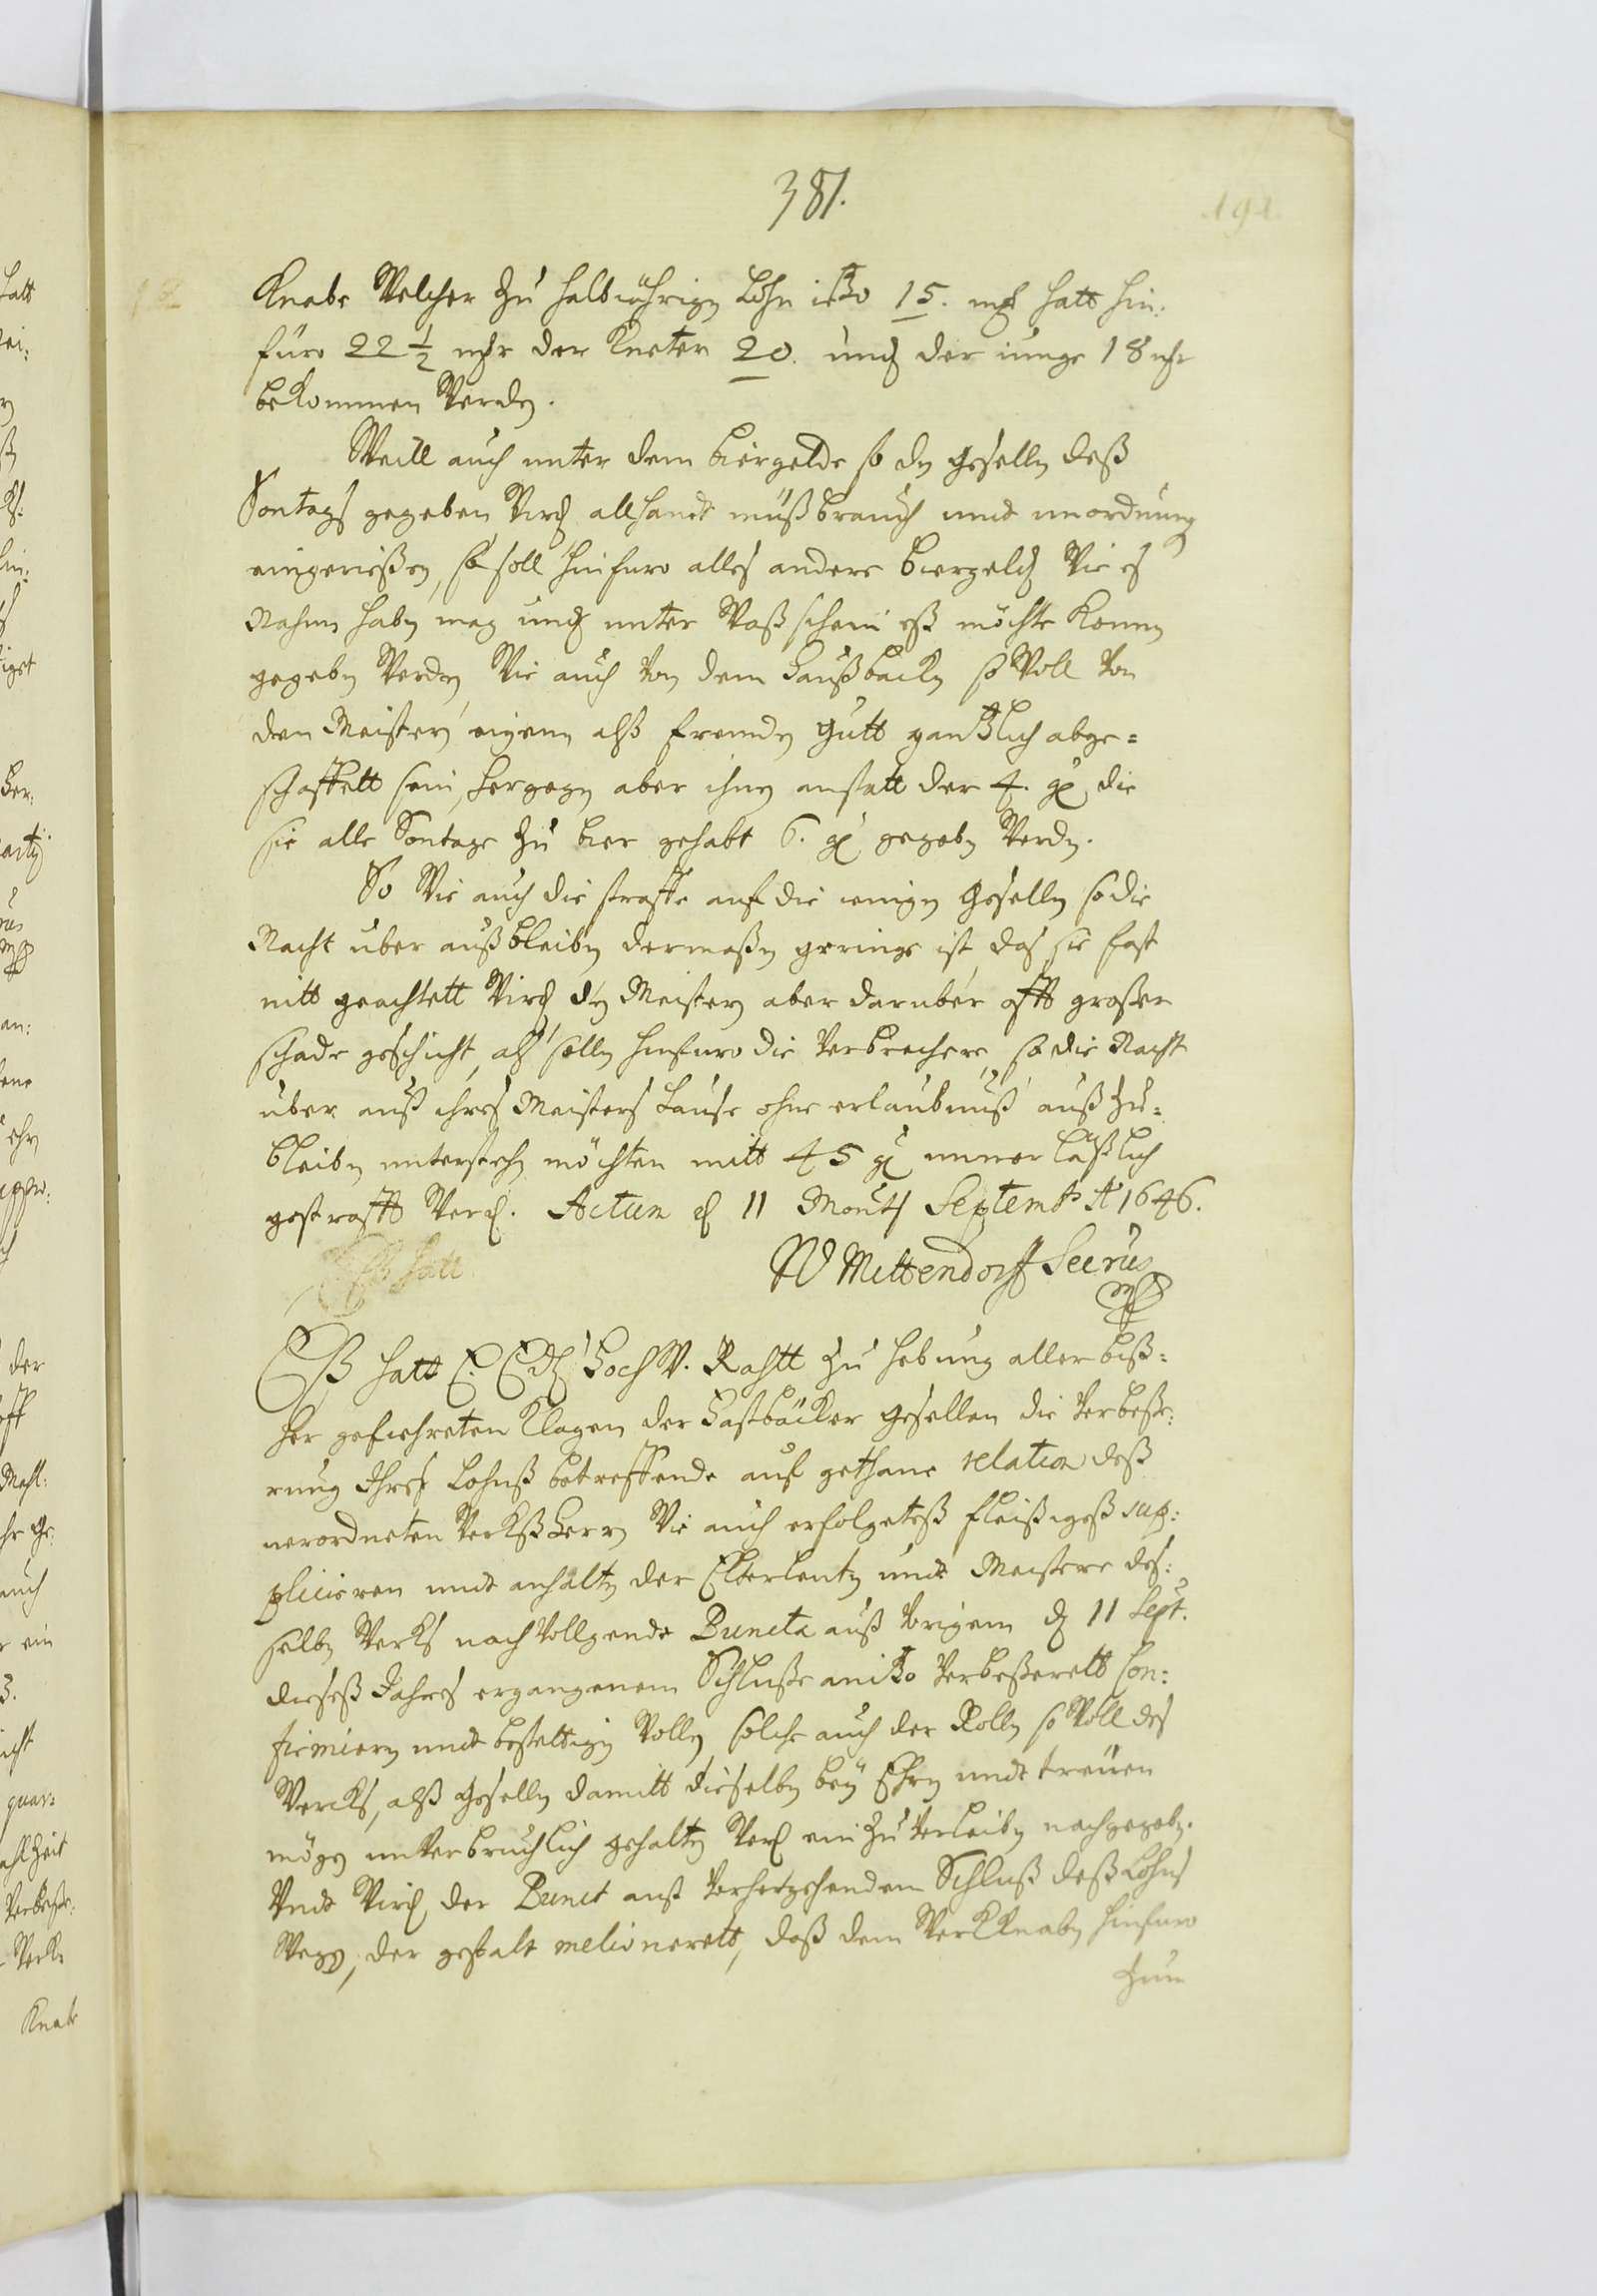 381.
191.
Knabe Welcher Zu halbiährign Lohn itzo 15. mk hatt hin:
füro 22 ½ mkr der Kneter 20. und der iunge 18 mkr
bekommen Werdn.
Weill auch unter dem biergelde so dn Geselln deß
Sontags gegeben Wird allhandt mißbrauch undt unordnung
eingerißen, so soll hinfuro alles andere biergeld Wie es
Nahmen habn mag und unter Waß schein eß möchte konnen
gegebn Werdn, Wie auch von dem Haußbackn so Woll von
den Meistern eigenen alß fremdn Gutt gantzlich abge=
schaffett sein, hergegn aber ihnn anstatt der 4. g, die
sie alle Sontage Zu bier gehabt 6. g gegebn Werdn.
So Wie auch die straffe auf die ienign Geselln so die
Nacht uber außbleibn dermaßn geringe ist, das sie fast
nitt geachtett Wird, dn Meistern aber darüber offt großer
schade geschicht, alß solln hinfuro die verbrechere, so die Nacht
über auß ihres Meisters Hause ohne erlaubnuß auß zu=
bleibn unterstehn möchten mitt 45 g unnerläßlich
gestrafft Werd. Actum d 11 Monats Septemb A 1646.
Eß hatt
W Mittendorff Secrus
mp
Eß hatt E. Edl Hoch W. Rahtt Zu hebung aller biß=
her gefuehreten Klagen der Fastbäcker Gesellen die verbeße:
rung Ihres Lohnß betreffende auf gethane relation deß
verordneten Werkß Herrn Wie auch erfolgeteß fleißigeß sup:
pliciren undt anhaltn der Elterleutn undt Meistere des:
selbn Werks nachvollgende Puncta auß vorigem d 11 Sept.
dieseß Jahres ergangenem Schluße anitzo verbeßerett con:
firmiern undt bestettign Wolln, solche auch der Rolln so Woll des
Wercks, alß Geselln damitt dieselbn beÿ Ehrn undt treüen
mögn unverbruchlich gehaltn Werd ein Zu verleibn nachgegebn.
Undt Wird der Punct auß vorhergehendem Schluß deß Lohns
Wegn, der gestalt melioriert, daß dem Werckknabn hinfuro
Zum